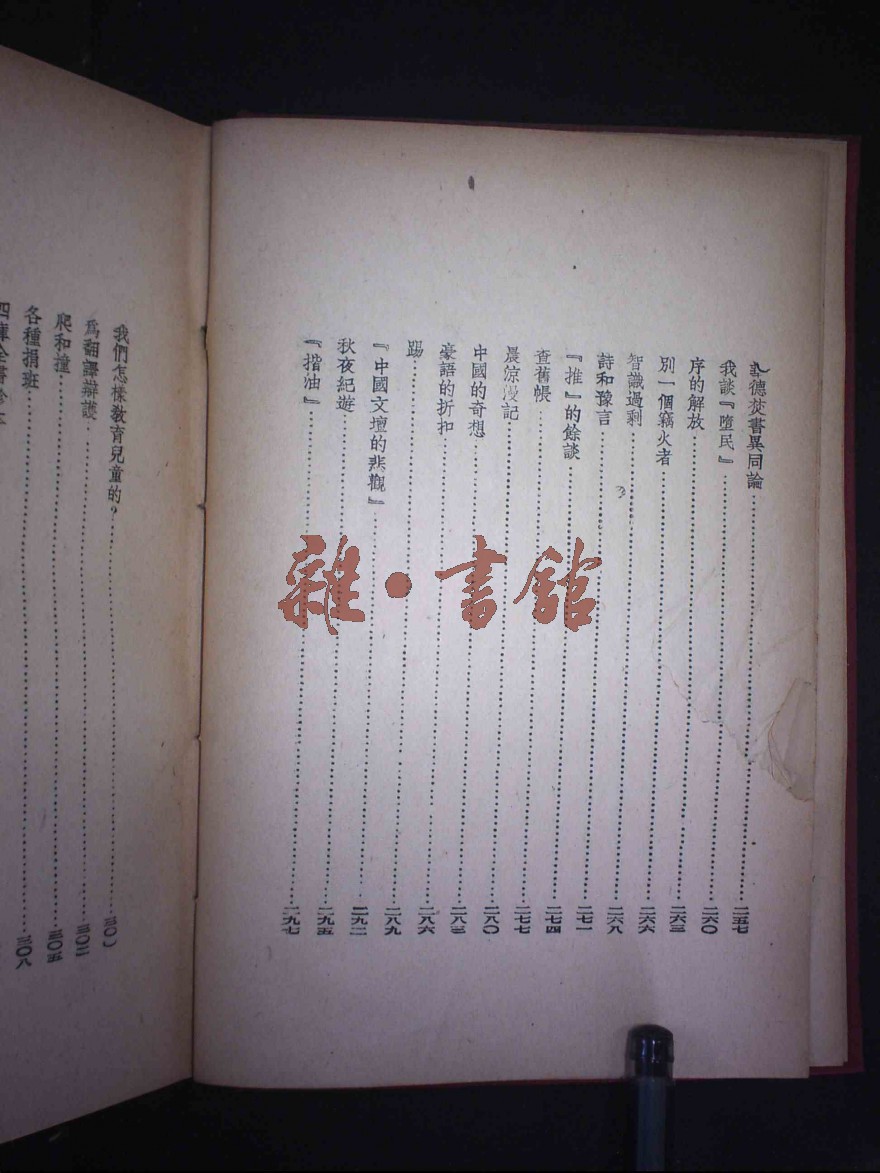 華德焚書異同論……二五七
我談『墮民』……二六〇
序的解放……二六三
別一個竊火者……二六六
智識過剩……二六八
詩和豫言……二七一
『推』的餘談……二七四
查舊帳……二七七
晨涼漫記……二八〇
中國的奇想……二八三
豪語的折扣……二八六
踢……二八九
『中國文壇的悲觀』……二九二
秋夜紀遊……二九五
『揩油』……二九七
我們怎樣教育兒童的?……三〇〇
爲翻譯辯護……三〇二
爬和撞……三〇五
各種捐班……三〇八
四庫全書
雜·書館